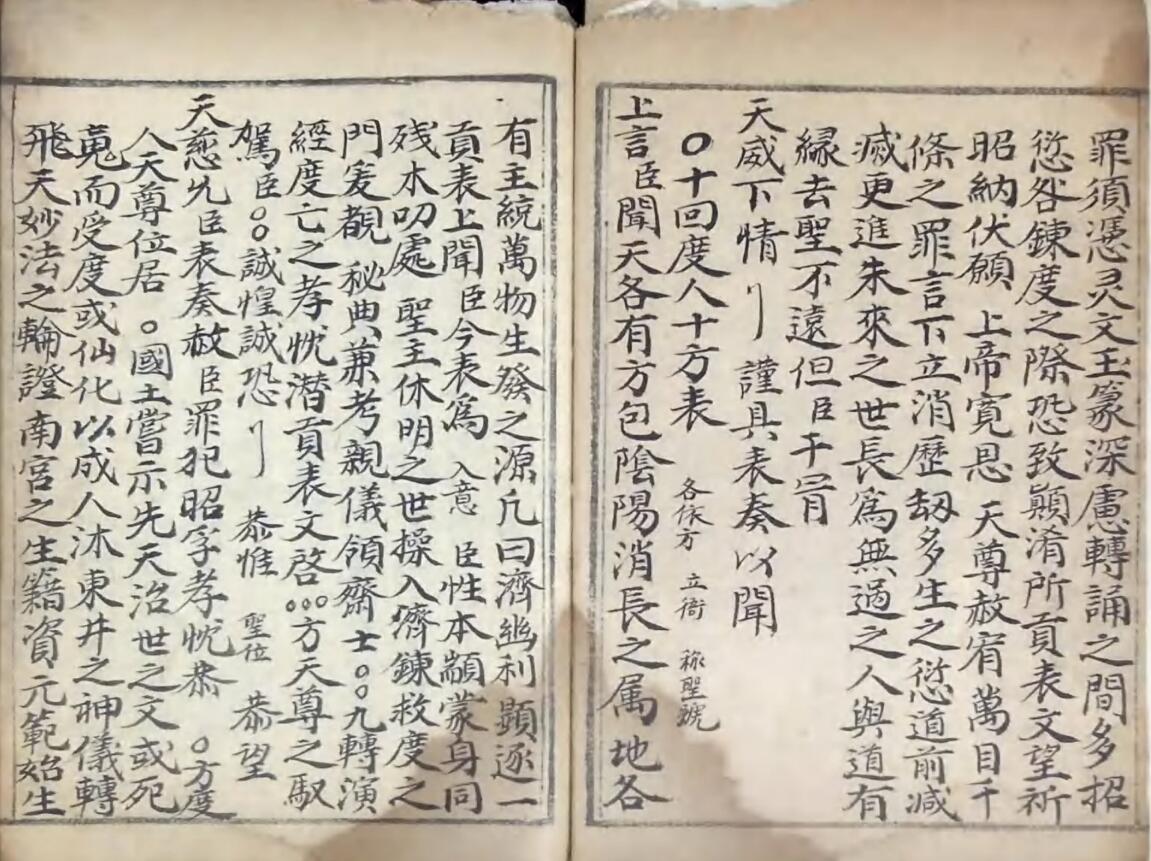 罪須憑灵文玉篆深慮轉誦之間多招
愆咎鍊度之際恐致顚淆所貢表文望祈
昭納伏願　上帝寬恩　天尊赦宥萬目千
條之罪言下立消歷刼多生之愆道前减
滅更進朱來之世長爲無過之人與道有
縁去聖不遠但臣干冐
天威下情〢謹具表奏以聞
〇十回度人十方表　各依方　立衔　称聖號
上言臣聞天各有方包陰陽消長之属地各
有主統萬物生發之源凡曰濟幽利顕逐一
貢表上聞臣今表爲　入意　臣性本顓蒙身同
残木叨處　聖主休明之世操入濟鍊救度之
門爰覩　秘典兼考親儀領齋士〇〇九轉演
經度亡之孝忱潜貢表文啓〇〇〇方天尊之馭
駕臣〇〇誠惶誠恐〢　恭惟　聖位　恭望
天慈允臣表奏赦臣罪犯昭孚孝忱恭　〇方度
人天尊位居　〇國土嘗示先天治世之文或死
䰟而受度或仙化以成人沐東井之神儀轉
飛天妙法之輪證南宮之生籍資元範始生